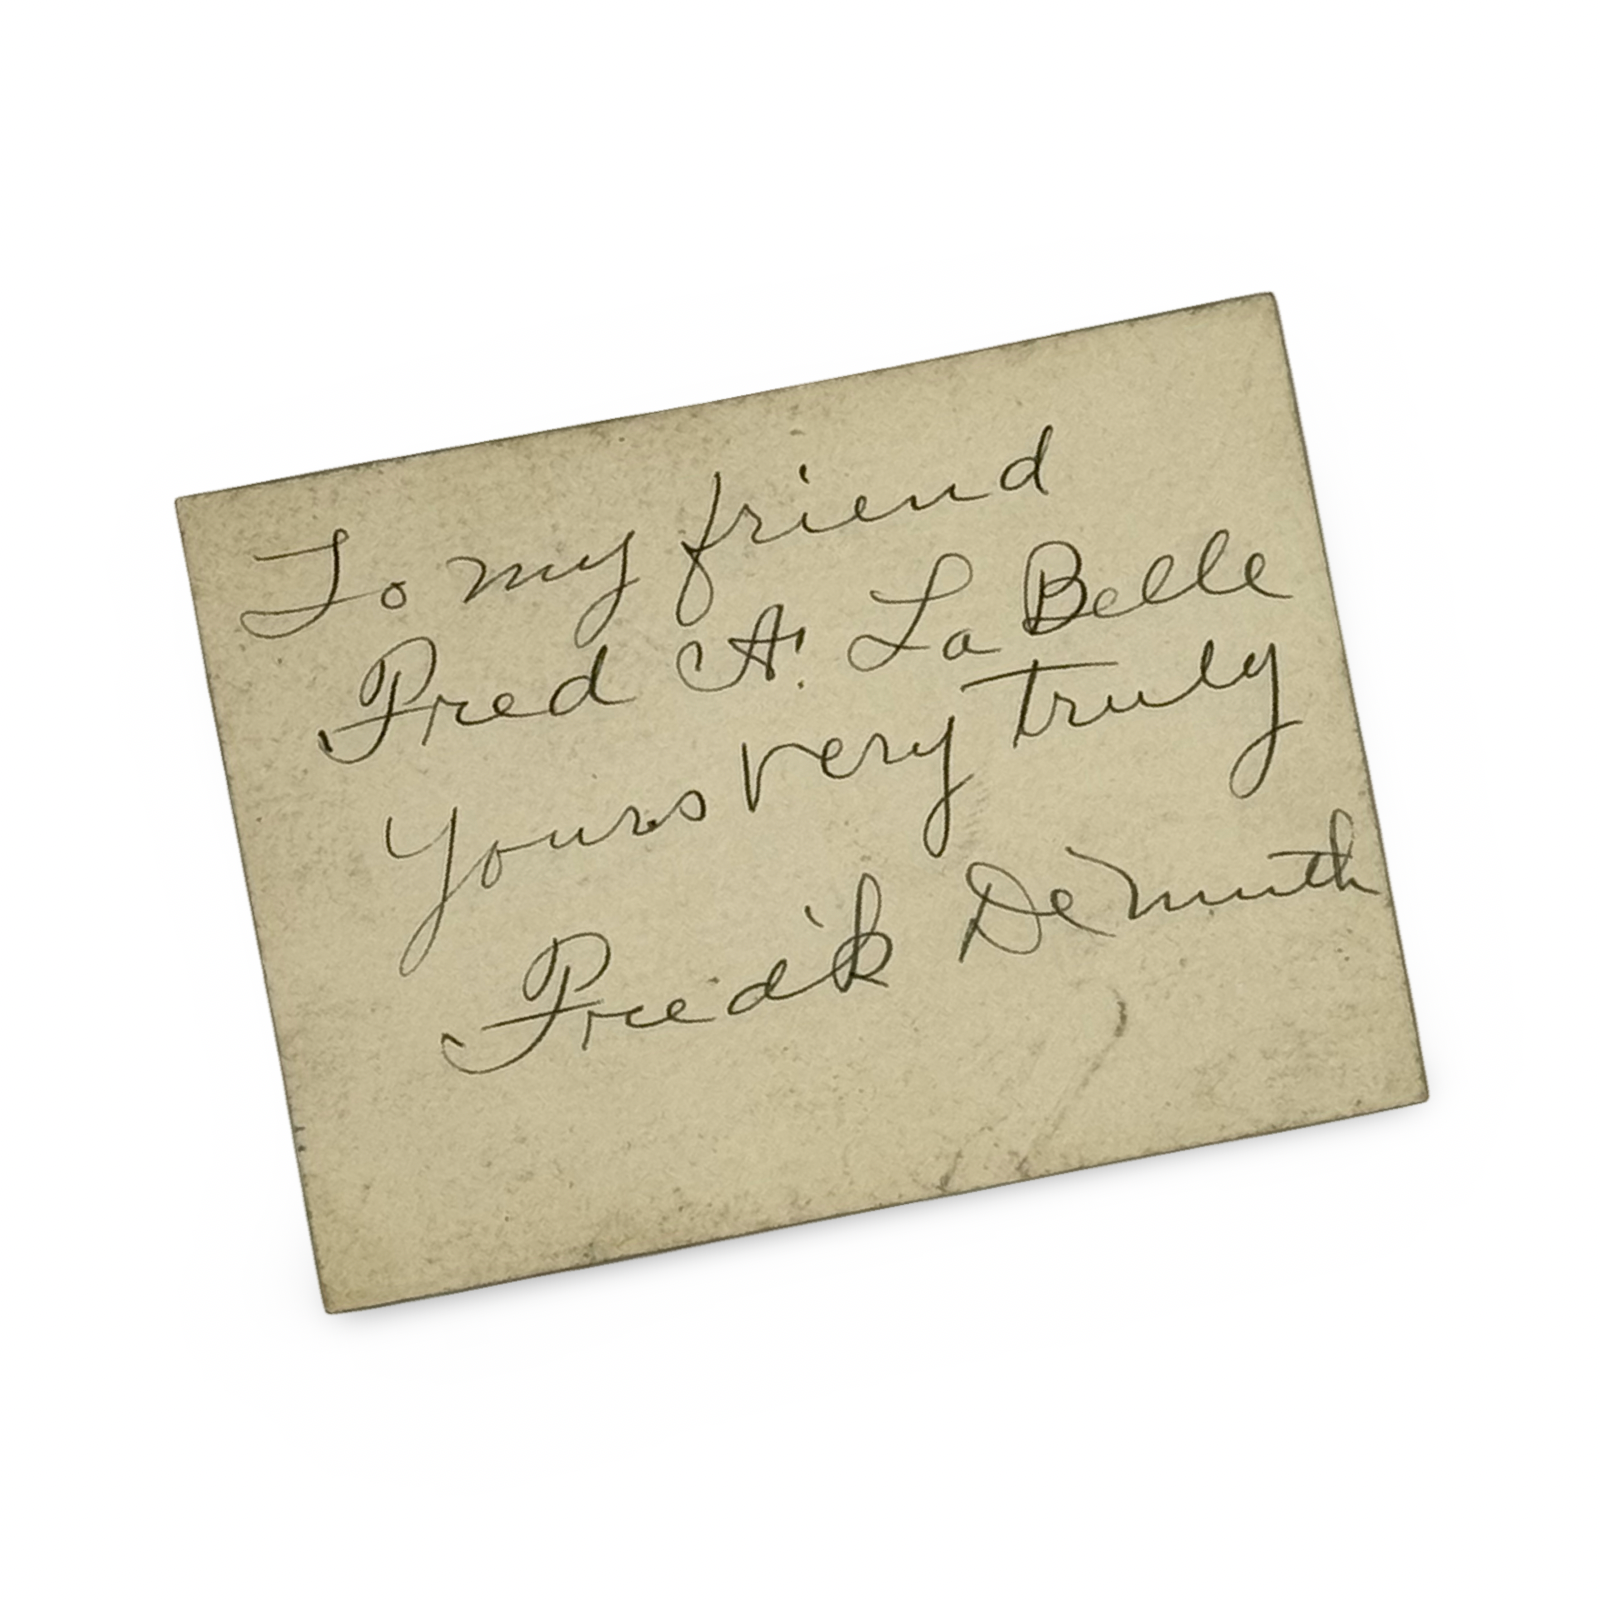 To my friend
Fred A. La Belle
Yours very truly
Fred'k De Muth